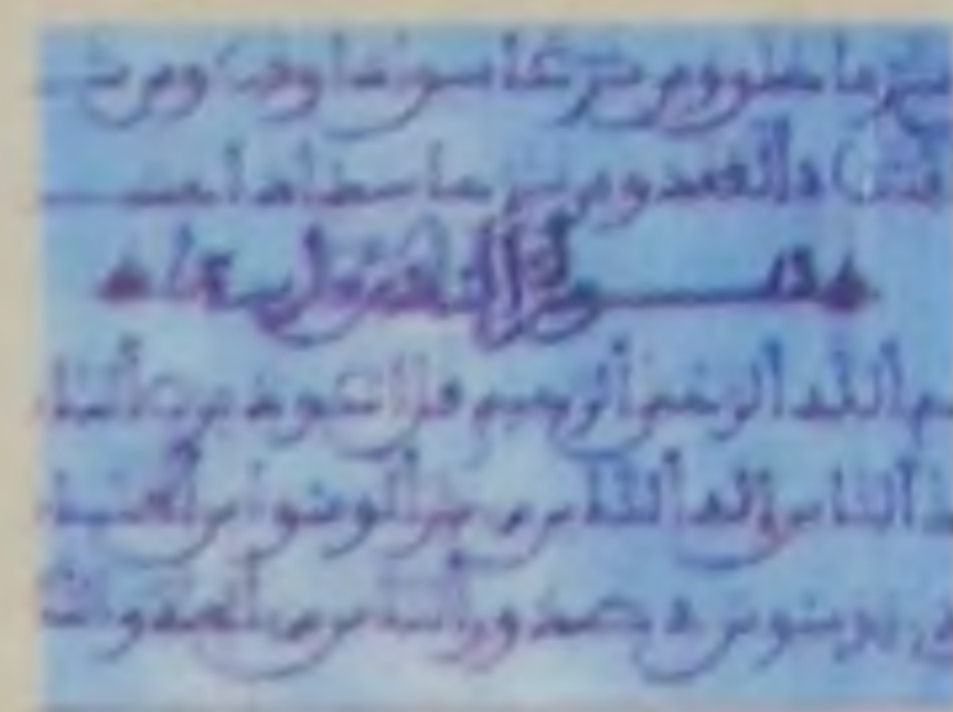 شر ما خلق ومن شر غاسق إذا وقب ومن شر
في العقد ومن شر حاسد إذا حسد
سم الله الرحمن الرحيم قل أعوذ برب النا
الناس إله الناس من شر الوسواس الخنا
يوسوس في صدور الناس من الجنة والنا